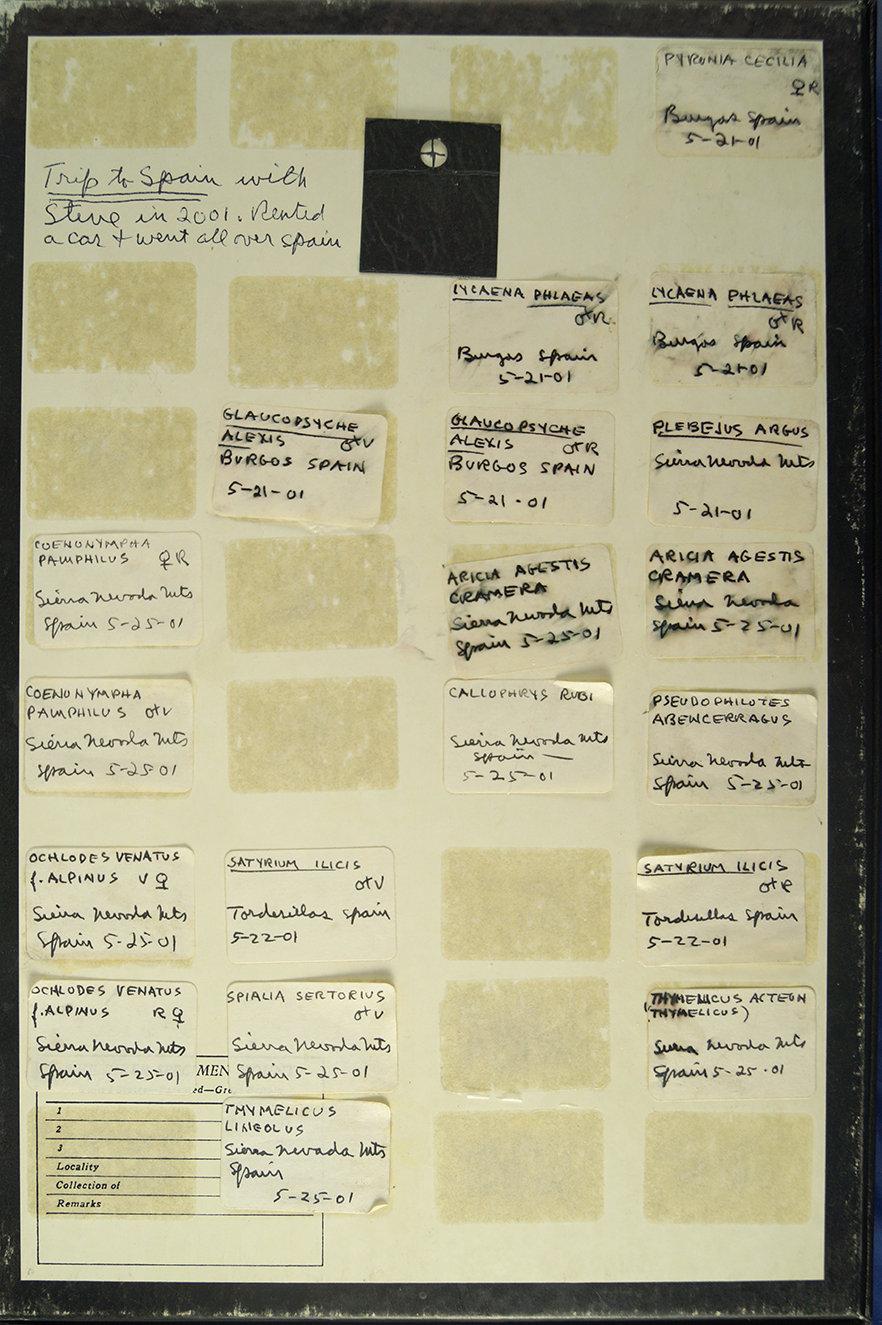 PYRONIA CECILIA
♀ R
Burgos Spain
5-21-01
Trip to Spain with
Steve in 2001. Rented
a car + went all over spain
LYCAENA PHLAEAS
♂ R
Burgos Spain
5-21-01
LYCAENA PHLAEAS
♂ R
Burgos Spain
5-21-01
GLAUCOPSYCHE
ALEXIS ♂ V
BURGOS SPAIN
5-21-01
GLAUCOPSYCHE
ALEXIS ♂ R
BURGOS SPAIN
5-21-01
PLEBEJUS ARGUS
Sierra Nevada Mts
5-21-01
COENONYMPHA
PAMPHILUS ♀ R
Sierra Nevada Mts
Spain 5-25-01
ARICIA AGESTIS
CRAMERA
Sierra Nevada Mts
Spain 5-25-01
ARICIA AGESTIS
CRAMERA
Sierra Nevada
Spain 5-25-01
COENONYMPHA
PAMPHILUS ♂ V
Sierra Nevada Mts
Spain 5-25-01
CALLOPHRYS RUBI
Sierra Nevada Mts
Spain —
5-25-01
PSEUDOPHILOTES
ABENCERRAGUS
Sierra Nevada Mts
Spain 5-25-01
OCHLODES VENATUS
f. ALPINUS V ♀
Sierra Nevada Mts
Spain 5-25-01
SATYRIUM ILICIS
♂ V
Tordesillas Spain
5-22-01
SATYRIUM ILICIS
♂ R
Tordesillas Spain
5-22-01
OCHLODES VENATUS
f. ALPINUS R ♀
Sierra Nevada Mts
Spain 5-25-01
SPIALIA SERTORIUS
♂ V
Sierra Nevada Mts
Spain 5-25-01
THYMENICUS ACTEON
(THYMELICUS)
Sierra Nevada Mts
Spain 5-25-01
MEN
ed—Gr
1
2
3
Locality
Collection of
Remarks
THYMELICUS
LINEOLUS
Sierra Nevada Mts
Spain
5-25-01